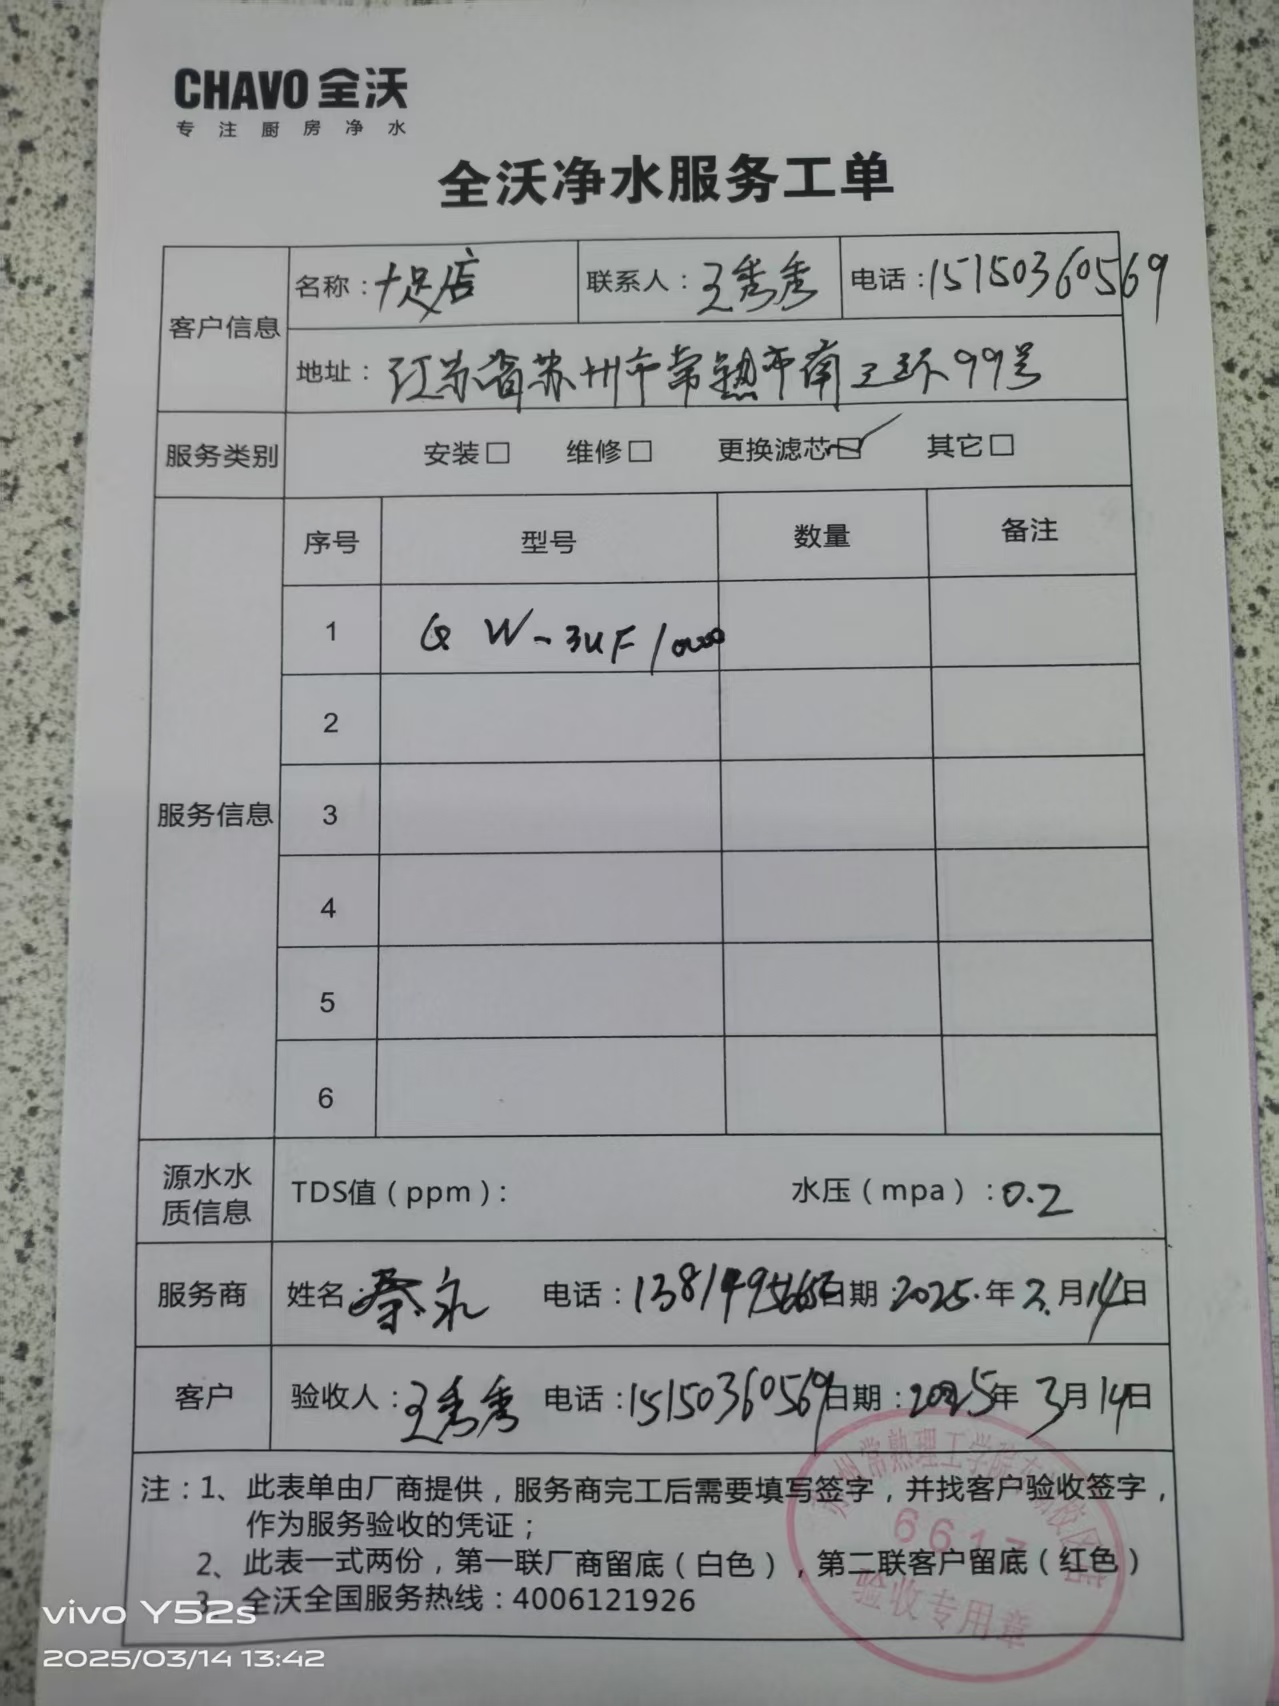 CHAVO 全沃
专注厨房净水
全沃净水服务工单
客户信息
名称：十足店 联系人：王秀秀 电话：15150360569
地址：江苏省苏州市常熟市南三环99号
服务类别 安装□ 维修□ 更换滤芯☑ 其它□
服务信息
序号 型号 数量 备注
1 QW-3UF/1000
2
3
4
5
6
源水水质信息 TDS值（ppm）： 水压（mpa）：0.2
服务商 姓名：蔡永 电话： 日期：2025.年3.月14日
客户 验收人：王秀秀 电话：15150360569 日期：2025年3月14日
注：1、此表单由厂商提供，服务商完工后需要填写签字，并找客户验收签字，
作为服务验收的凭证；
2、此表一式两份，第一联厂商留底（白色），第二联客户留底（红色）
3、全沃全国服务热线：4006121926
州常熟理工学院 校区店
6617
验收专用章
vivo Y52s
2025/03/14 13:42